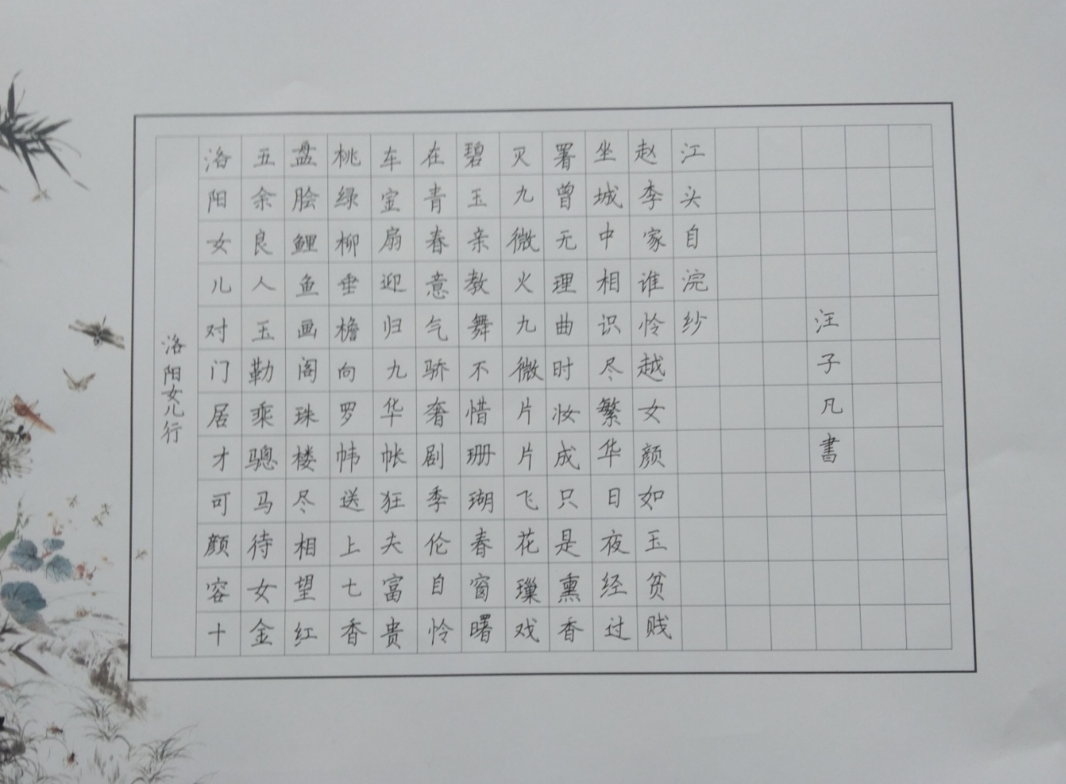 洛阳女儿行
洛阳女儿对门居才可颜容十
五余良人玉勒乘骢马待女金
盘脍鲤鱼画阁珠楼尽相望红
桃绿柳垂檐向罗帏送上七香
车宝扇迎归九华帐狂夫富贵
在青春意气骄奢剧季伦自怜
碧玉亲教舞不惜珊瑚春窗曙
灭九微火九微片片飞花璅戏
署曾无理曲时妆成只是熏香
坐城中相识尽繁华日夜经过
赵李家谁怜越女颜如玉贫贱
江头自浣纱
汪子凡書